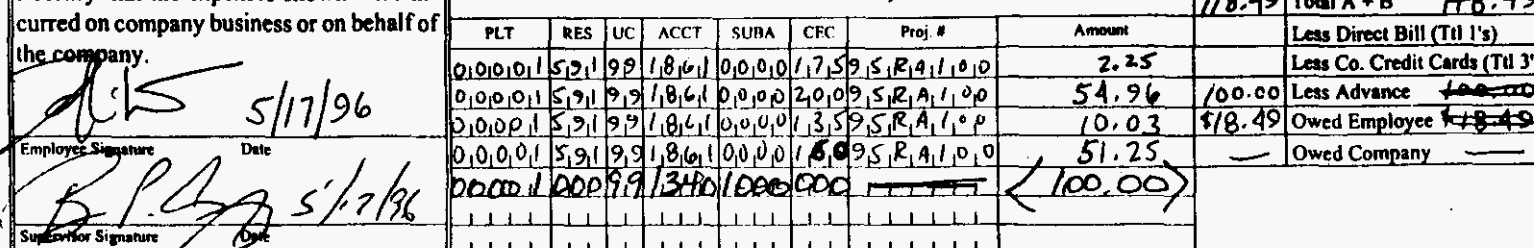 curred on company business or on behalf of
the company.
5/17/96
Employee Signature Date
5/17/96
Supervisor Signature Date
PLT RES UC ACCT SUBA CFC Proj. # Amount
00001 591 99 1861 0000 175 95RA100 2.25
00001 591 99 1861 0000 200 95RA100 54.96
00001 591 99 1861 0000 135 95RA100 10.03
00001 591 99 1861 0000 95RA100 51.25
00001 000 99 1340 1000 000 <100.00>
118.49 Total A + B 118.49
Less Direct Bill (Ttl 1's)
Less Co. Credit Cards (Ttl 3'
100.00 Less Advance 100.00
$18.49 Owed Employee $18.49
— Owed Company —